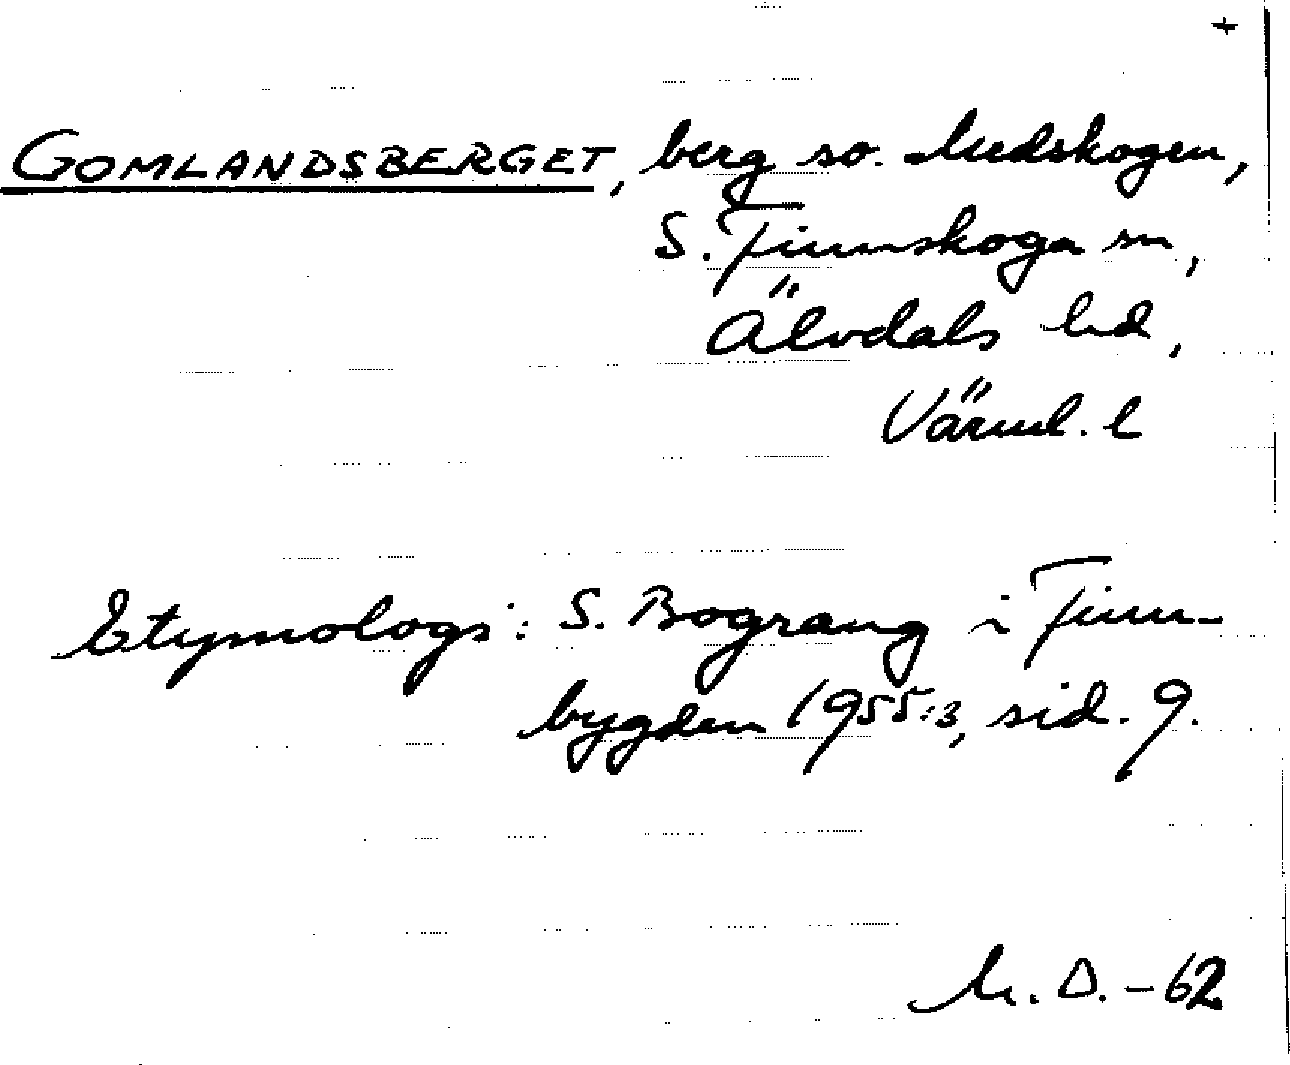 +
GOMLANDSBERGET, berg so. Medskogen,
S. Finnskoga sn,
Älvdals hd,
Värml. l
Etymologi: S. Bograng i Finn-
bygden 1955:3, sid. 9.
M. D. -62